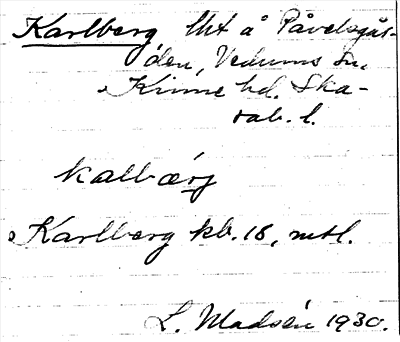 Karlberg lht å Påvelsgår-
den, Vedums sn.
Kinne hd. Ska-
rab. l.
kallbærj
Karlberg kb. 18, mtl.
L. Madsén 1930.